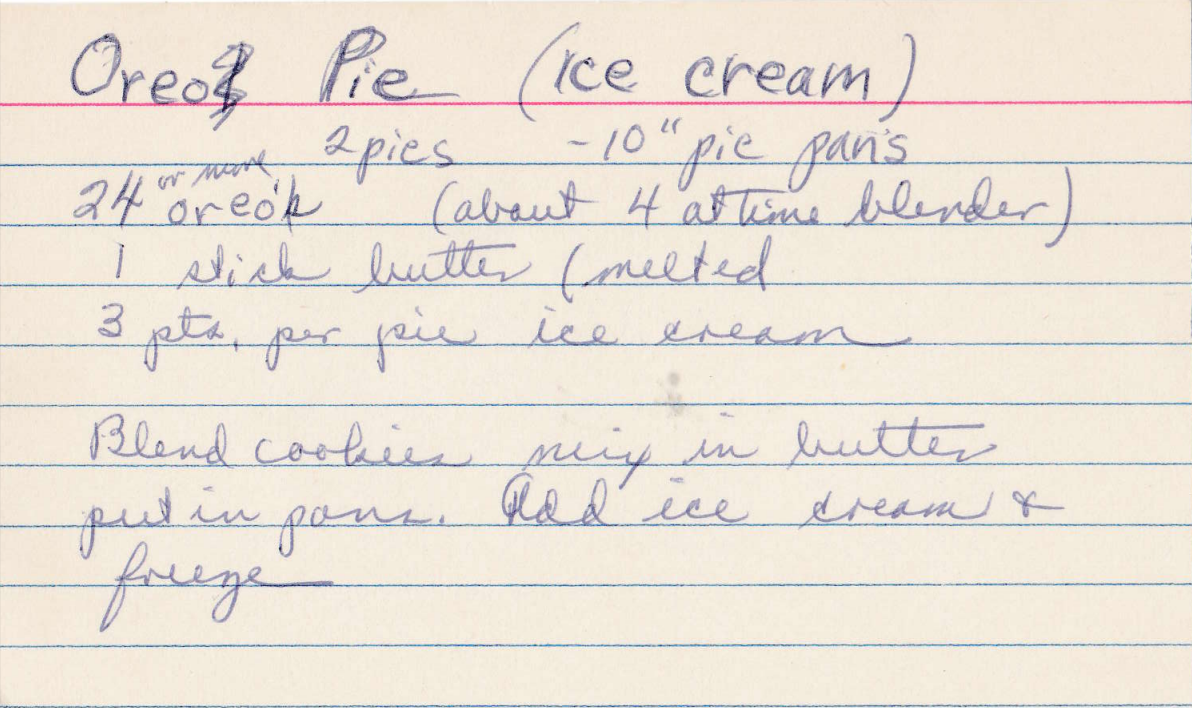 Oreo Pie (ice cream)
2 pies - 10" pie pan's
24 or more oreo's (about 4 at time blender)
1 stick butter (melted
3 pts. per pie ice cream
Blend cookies mix in butter
put in pans. Add ice cream &
freeze